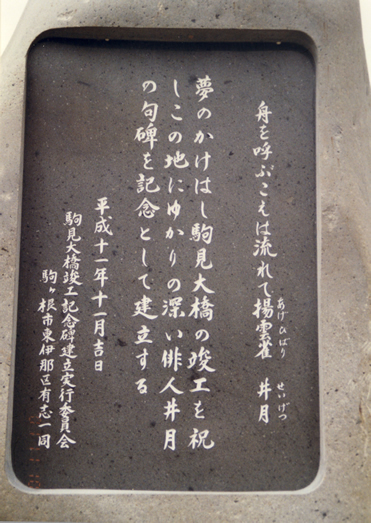 舟を呼ぶこえは流れて揚雲雀 井月
あげひばり
せいげつ
夢のかけはし駒見大橋の竣工を祝
しこの地にゆかりの深い俳人井月
の句碑を記念として建立する
平成十一年十一月吉日
駒見大橋竣工記念碑建立実行委員会
駒ヶ根市東伊那区有志一同